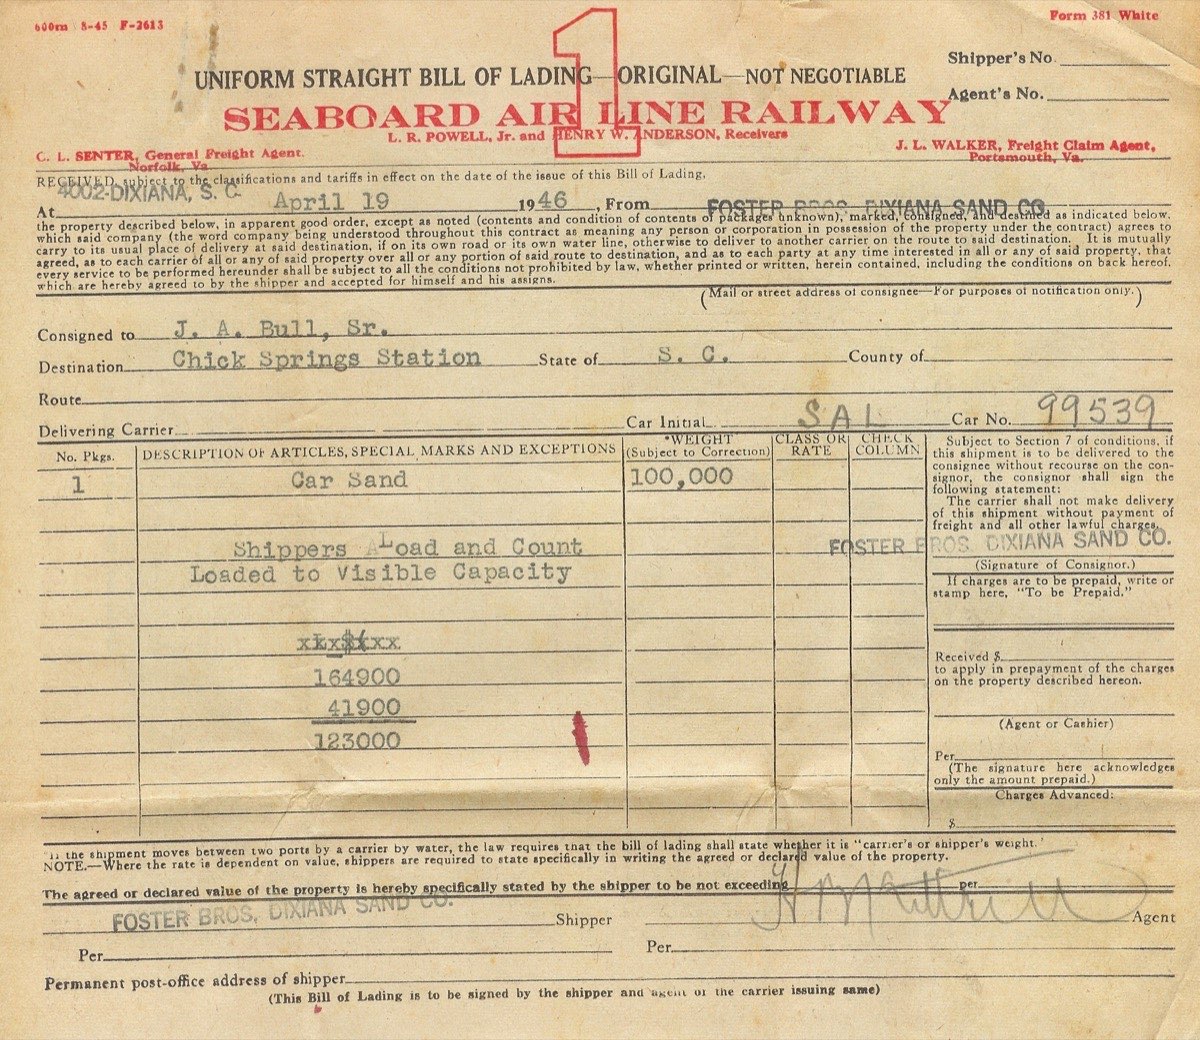 600m 8-45 F-2613
Form 381 White
1
Shipper's No.
UNIFORM STRAIGHT BILL OF LADING—ORIGINAL—NOT NEGOTIABLE
Agent's No.
SEABOARD AIR LINE RAILWAY
L. R. POWELL, Jr. and HENRY W. ANDERSON, Receivers
C. L. SENTER, General Freight Agent.
Norfolk, Va
J. L. WALKER, Freight Claim Agent,
Portsmouth, Va.
RECEIVED, subject to the classifications and tariffs in effect on the date of the issue of this Bill of Lading,
4002-DIXIANA, S. C.
At April 19 1946, From FOSTER BROS. DIXIANA SAND CO.
the property described below, in apparent good order, except as noted (contents and condition of contents of packages unknown), marked, consigned, and destined as indicated below,
which said company (the word company being understood throughout this contract as meaning any person or corporation in possession of the property under the contract) agrees to
carry to its usual place of delivery at said destination, if on its own road or its own water line, otherwise to deliver to another carrier on the route to said destination. It is mutually
agreed, as to each carrier of all or any of said property over all or any portion of said route to destination, and as to each party at any time interested in all or any of said property, that
every service to be performed hereunder shall be subject to all the conditions not prohibited by law, whether printed or written, herein contained, including the conditions on back hereof,
which are hereby agreed to by the shipper and accepted for himself and his assigns.
(Mail or street address of consignee—For purposes of notification only.)
Consigned to J. A. Bull, Sr.
Destination Chick Springs Station State of S. C. County of
Route
Delivering Carrier Car Initial SAL Car No. 99539
No. Pkgs.
DESCRIPTION OF ARTICLES, SPECIAL MARKS AND EXCEPTIONS
*WEIGHT
(Subject to Correction)
CLASS OR
RATE
CHECK
COLUMN
1 Car Sand 100,000
Shippers Load and Count
Loaded to Visible Capacity
164900
41900
123000
Subject to Section 7 of conditions, if
this shipment is to be delivered to the
consignee without recourse on the con-
signor, the consignor shall sign the
following statement:
The carrier shall not make delivery
of this shipment without payment of
freight and all other lawful charges.
FOSTER BROS. DIXIANA SAND CO.
(Signature of Consignor.)
If charges are to be prepaid, write or
stamp here, "To be Prepaid."
Received $
to apply in prepayment of the charges
on the property described hereon.
(Agent or Cashier)
Per
(The signature here acknowledges
only the amount prepaid.)
Charges Advanced:
$
*If the shipment moves between two ports by a carrier by water, the law requires that the bill of lading shall state whether it is "carrier's or shipper's weight."
NOTE.—Where the rate is dependent on value, shippers are required to state specifically in writing the agreed or declared value of the property.
The agreed or declared value of the property is hereby specifically stated by the shipper to be not exceeding per
FOSTER BROS. DIXIANA SAND CO. Shipper Agent
Per Per
Permanent post-office address of shipper
(This Bill of Lading is to be signed by the shipper and agent of the carrier issuing same)